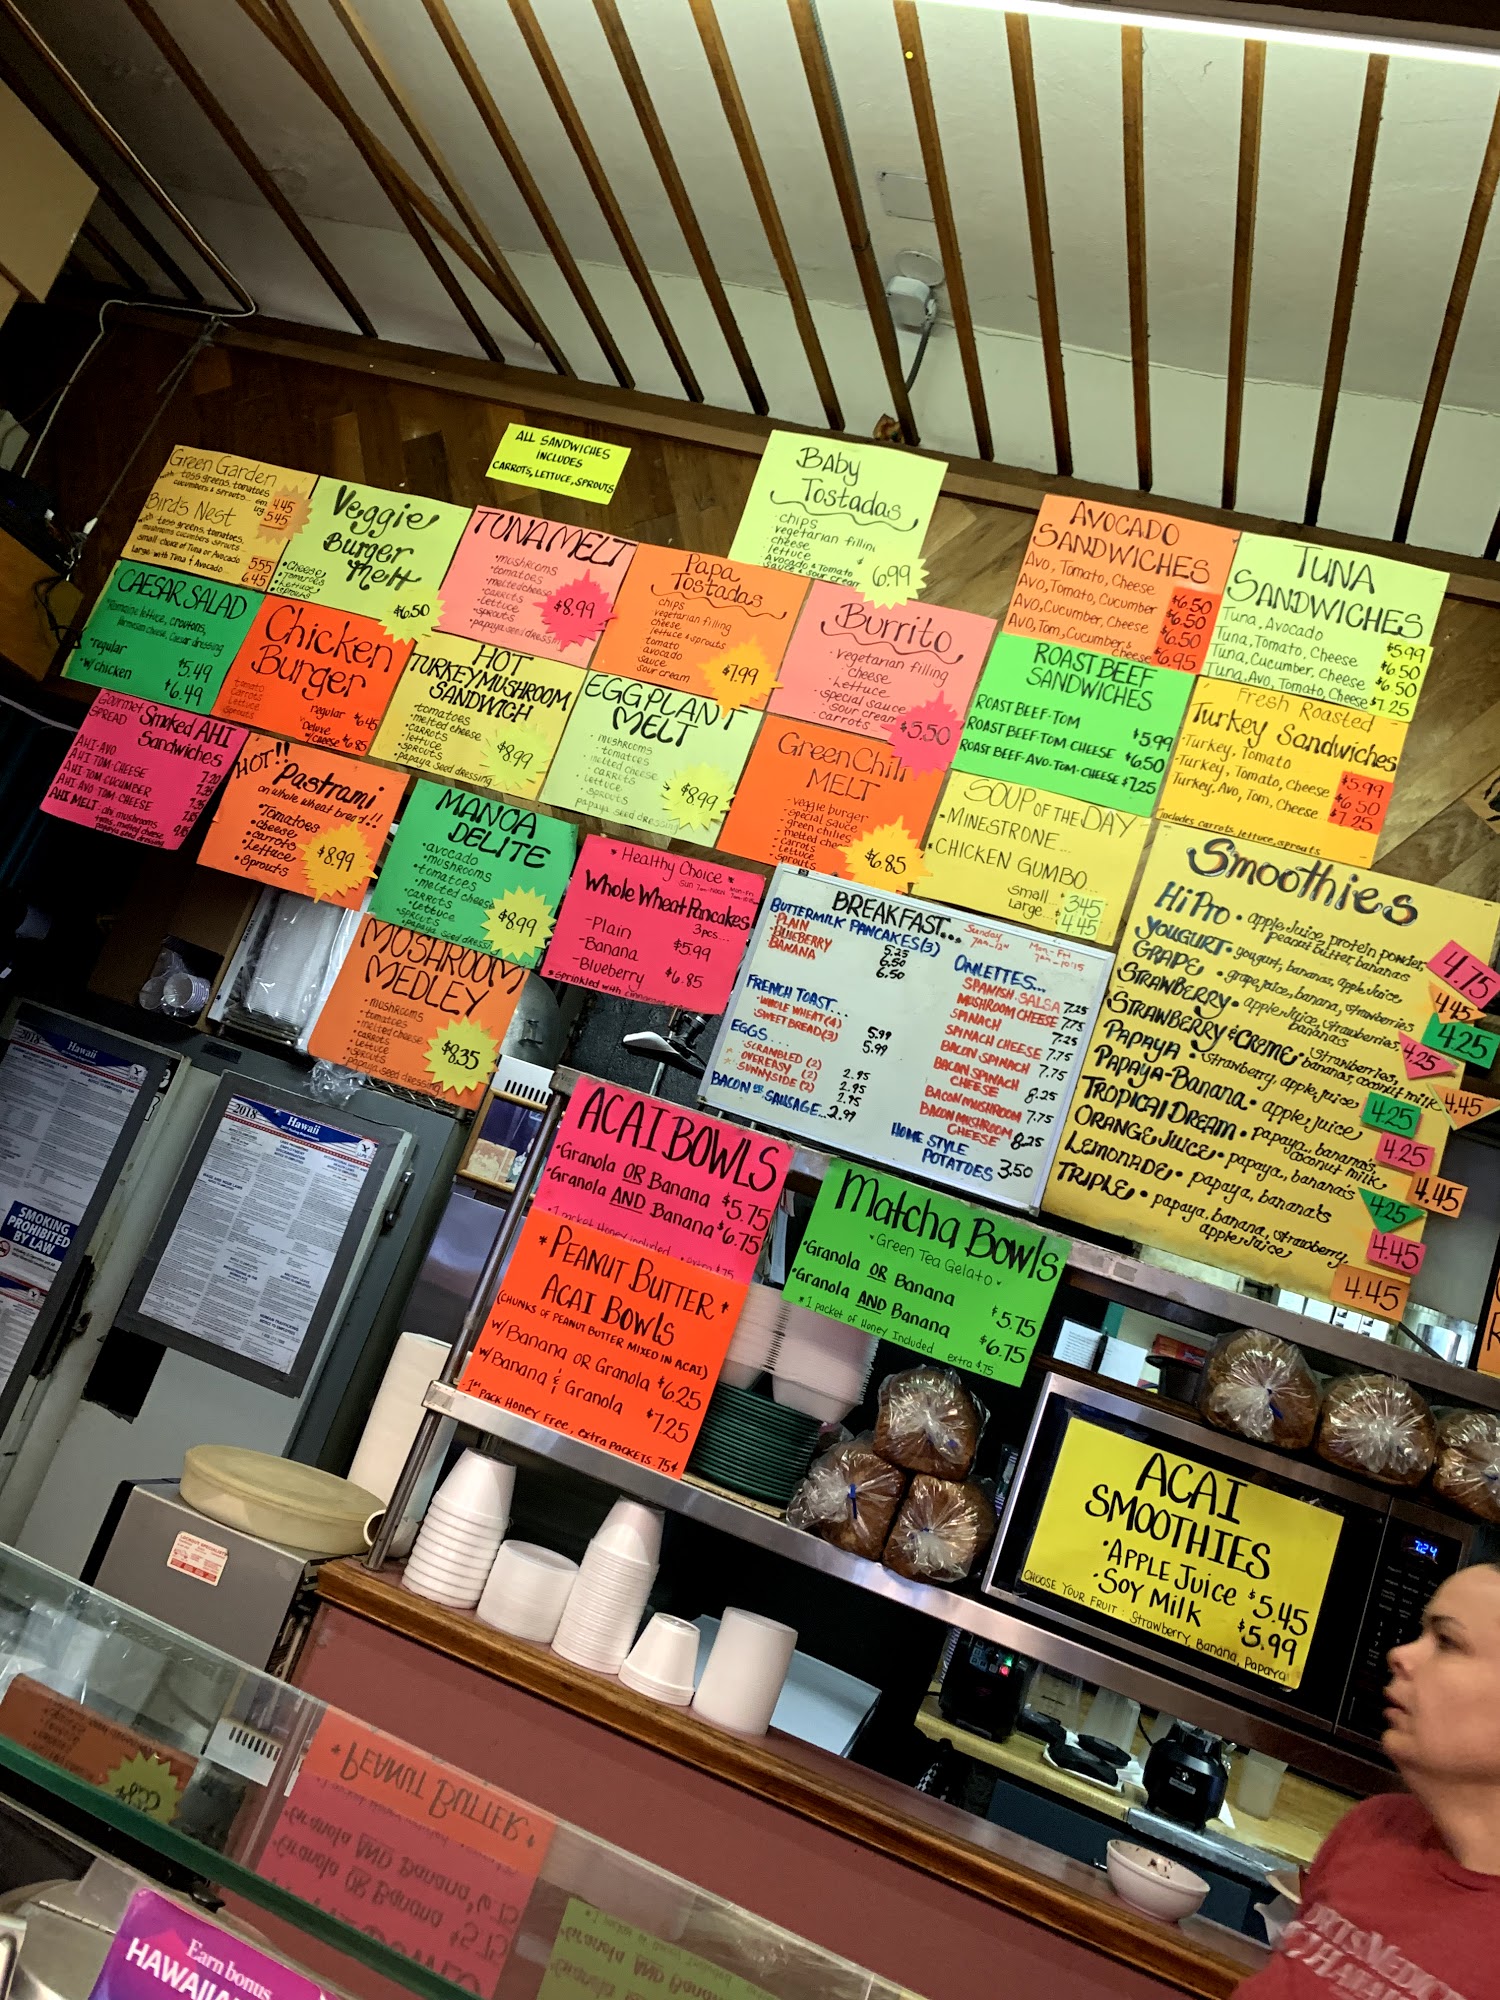 ALL SANDWICHES
INCLUDES
CARROTS, LETTUCE, SPROUTS
Green Garden
toss greens, tomatoes
cucumbers & sprouts
4.45
5.45
Bird's Nest
toss greens, tomatoes,
mushrooms cucumbers sprouts
small choice of Tuna or Avocado
Large with Tuna & Avocado
5.55
6.45
Veggie
Burger
Melt
• Cheese
• Tomatoes
• Lettuce
• Sprouts
$6.50
TUNA MELT
• mushrooms
• tomatoes
• melted cheese
• carrots
• lettuce
• sprouts
• papaya seed dressing
$8.99
Papa
Tostadas
chips
vegetarian filling
cheese
lettuce & sprouts
tomato
avocado
sauce
sour cream
$7.99
BABY
Tostadas
• chips
vegetarian filling
cheese
lettuce
avocado & tomato
sauce & sour cream
$6.99
Burrito
• vegetarian filling
cheese
• lettuce
• special sauce
• sour cream
carrots
$5.50
AVOCADO
SANDWICHES
Avo, Tomato, Cheese $6.50
Avo, Tomato, Cucumber $6.50
Avo, Cucumber, Cheese $6.50
Avo, Tom, Cucumber & Cheese $6.95
TUNA
SANDWICHES
Tuna, Avocado $5.99
Tuna, Tomato, Cheese $6.50
Tuna, Cucumber, Cheese $6.50
Tuna, Avo, Tomato, Cheese $7.25
CAESAR SALAD
Romaine lettuce, croutons,
Parmesan cheese, Caesar dressing
• regular $5.49
• w/ chicken $6.49
Chicken
Burger
tomato
Carrots
Lettuce
Sprouts
regular $6.45
Deluxe
w/ cheese $6.85
HOT
TURKEY MUSHROOM
SANDWICH
• tomatoes
• melted cheese
• carrots
• lettuce
• sprouts
• papaya seed dressing
$8.99
EGGPLANT
MELT
• mushrooms
• tomatoes
• melted cheese
• carrots
• lettuce
• sprouts
papaya seed dressing
$8.99
Green Chili
MELT
• veggie burger
• special sauce
• green chilies
• melted cheese
• carrots
• lettuce
sprouts
$6.85
ROAST BEEF
SANDWICHES
ROAST BEEF-TOM $5.99
ROAST BEEF TOM CHEESE $6.50
ROAST BEEF-AVO-TOM-CHEESE $7.25
Fresh Roasted
Turkey Sandwiches
• Turkey, Tomato $5.99
• Turkey, Tomato, Cheese $6.50
Turkey, Avo, Tom, Cheese $7.25
includes carrots, lettuce, sprouts
Gourmet
SPREAD
Smoked AHI
Sandwiches
AHI-AVO 7.20
AHI TOM-CHEESE
AHI TOM CUCUMBER
AHI AVO TOM-CHEESE
AHI MELT
HOT!!
Pastrami
on whole wheat bread!!
• Tomatoes
• cheese
• Carrots
• Lettuce
• Sprouts
$8.99
MANOA
DELITE
• avocado
• mushrooms
• tomatoes
• melted cheese
• carrots
• lettuce
• sprouts
• papaya seed dressing
$8.99
* Healthy Choice *
Whole Wheat Pancakes
3 pcs...
- Plain $5.99
- Banana
- Blueberry $6.85
SOUP OF THE DAY
• MINESTRONE...
• CHICKEN GUMBO...
Small... 3.45
Large... $4.45
MUSHROOM
MEDLEY
• mushrooms
• tomatoes
• melted cheese
• carrots
• Lettuce
• sprouts
• papaya seed dressing
$8.35
BREAKFAST...
Sunday
7AM-12N
Mon-Fri
7AM-10:15
BUTTERMILK PANCAKES (3)
• PLAIN 5.25
• BLUEBERRY 6.50
BANANA 6.50
FRENCH TOAST...
• WHOLE WHEAT (4) 5.99
SWEET BREAD (3) 5.99
EGGS...
SCRAMBLED (2) 2.95
OVER EASY (2) 2.95
SUNNYSIDE (2) 2.95
BACON OR SAUSAGE... 2.99
OMLETTES...
SPANISH SALSA 7.25
MUSHROOM CHEESE 7.75
SPINACH 7.25
SPINACH CHEESE 7.75
BACON SPINACH 7.75
BACON SPINACH
CHEESE 8.25
BACON MUSHROOM 7.75
BACON MUSHROOM
CHEESE 8.25
HOME STYLE
POTATOES 3.50
Smoothies
Hi Pro • apple juice, protein powder,
peanut butter, bananas 4.75
YOUGURT • yougurt, bananas, apple juice 4.45
GRAPE • grape juice, banana, strawberries 4.25
STRAWBERRY • apple juice, strawberries,
bananas 4.25
STRAWBERRY & CREME • strawberries,
bananas, coconut milk 4.45
PAPAYA • strawberry, apple juice 4.25
PAPAYA-BANANA • apple juice 4.25
TROPICAL DREAM • papaya, bananas,
coconut milk 4.45
ORANGE JUICE • papaya, banana's 4.25
LEMONADE • papaya, banana's 4.45
TRIPLE • papaya, banana, strawberry,
apple juice 4.45
ACAI BOWLS
• Granola OR Banana $5.75
• Granola AND Banana $6.75
• 1 packet Honey included • extra $.75
* PEANUT BUTTER *
ACAI BOWLS
(CHUNKS OF PEANUT BUTTER MIXED IN ACAI)
w/ Banana OR Granola $6.25
w/ Banana & Granola $7.25
- 1st Pack Honey Free, extra PACKETS .75¢
Matcha Bowls
• Green Tea Gelato •
• Granola OR Banana $5.75
• Granola AND Banana $6.75
* 1 packet of Honey Included extra $.75
ACAI
SMOOTHIES
• APPLE JUICE $5.45
• SOY MILK $5.99
CHOOSE YOUR FRUIT: Strawberry, Banana, Papaya
7:24
2018 Hawaii
SMOKING
PROHIBITED
BY LAW
2018 Hawaii
Earn bonus
HAWAIIA